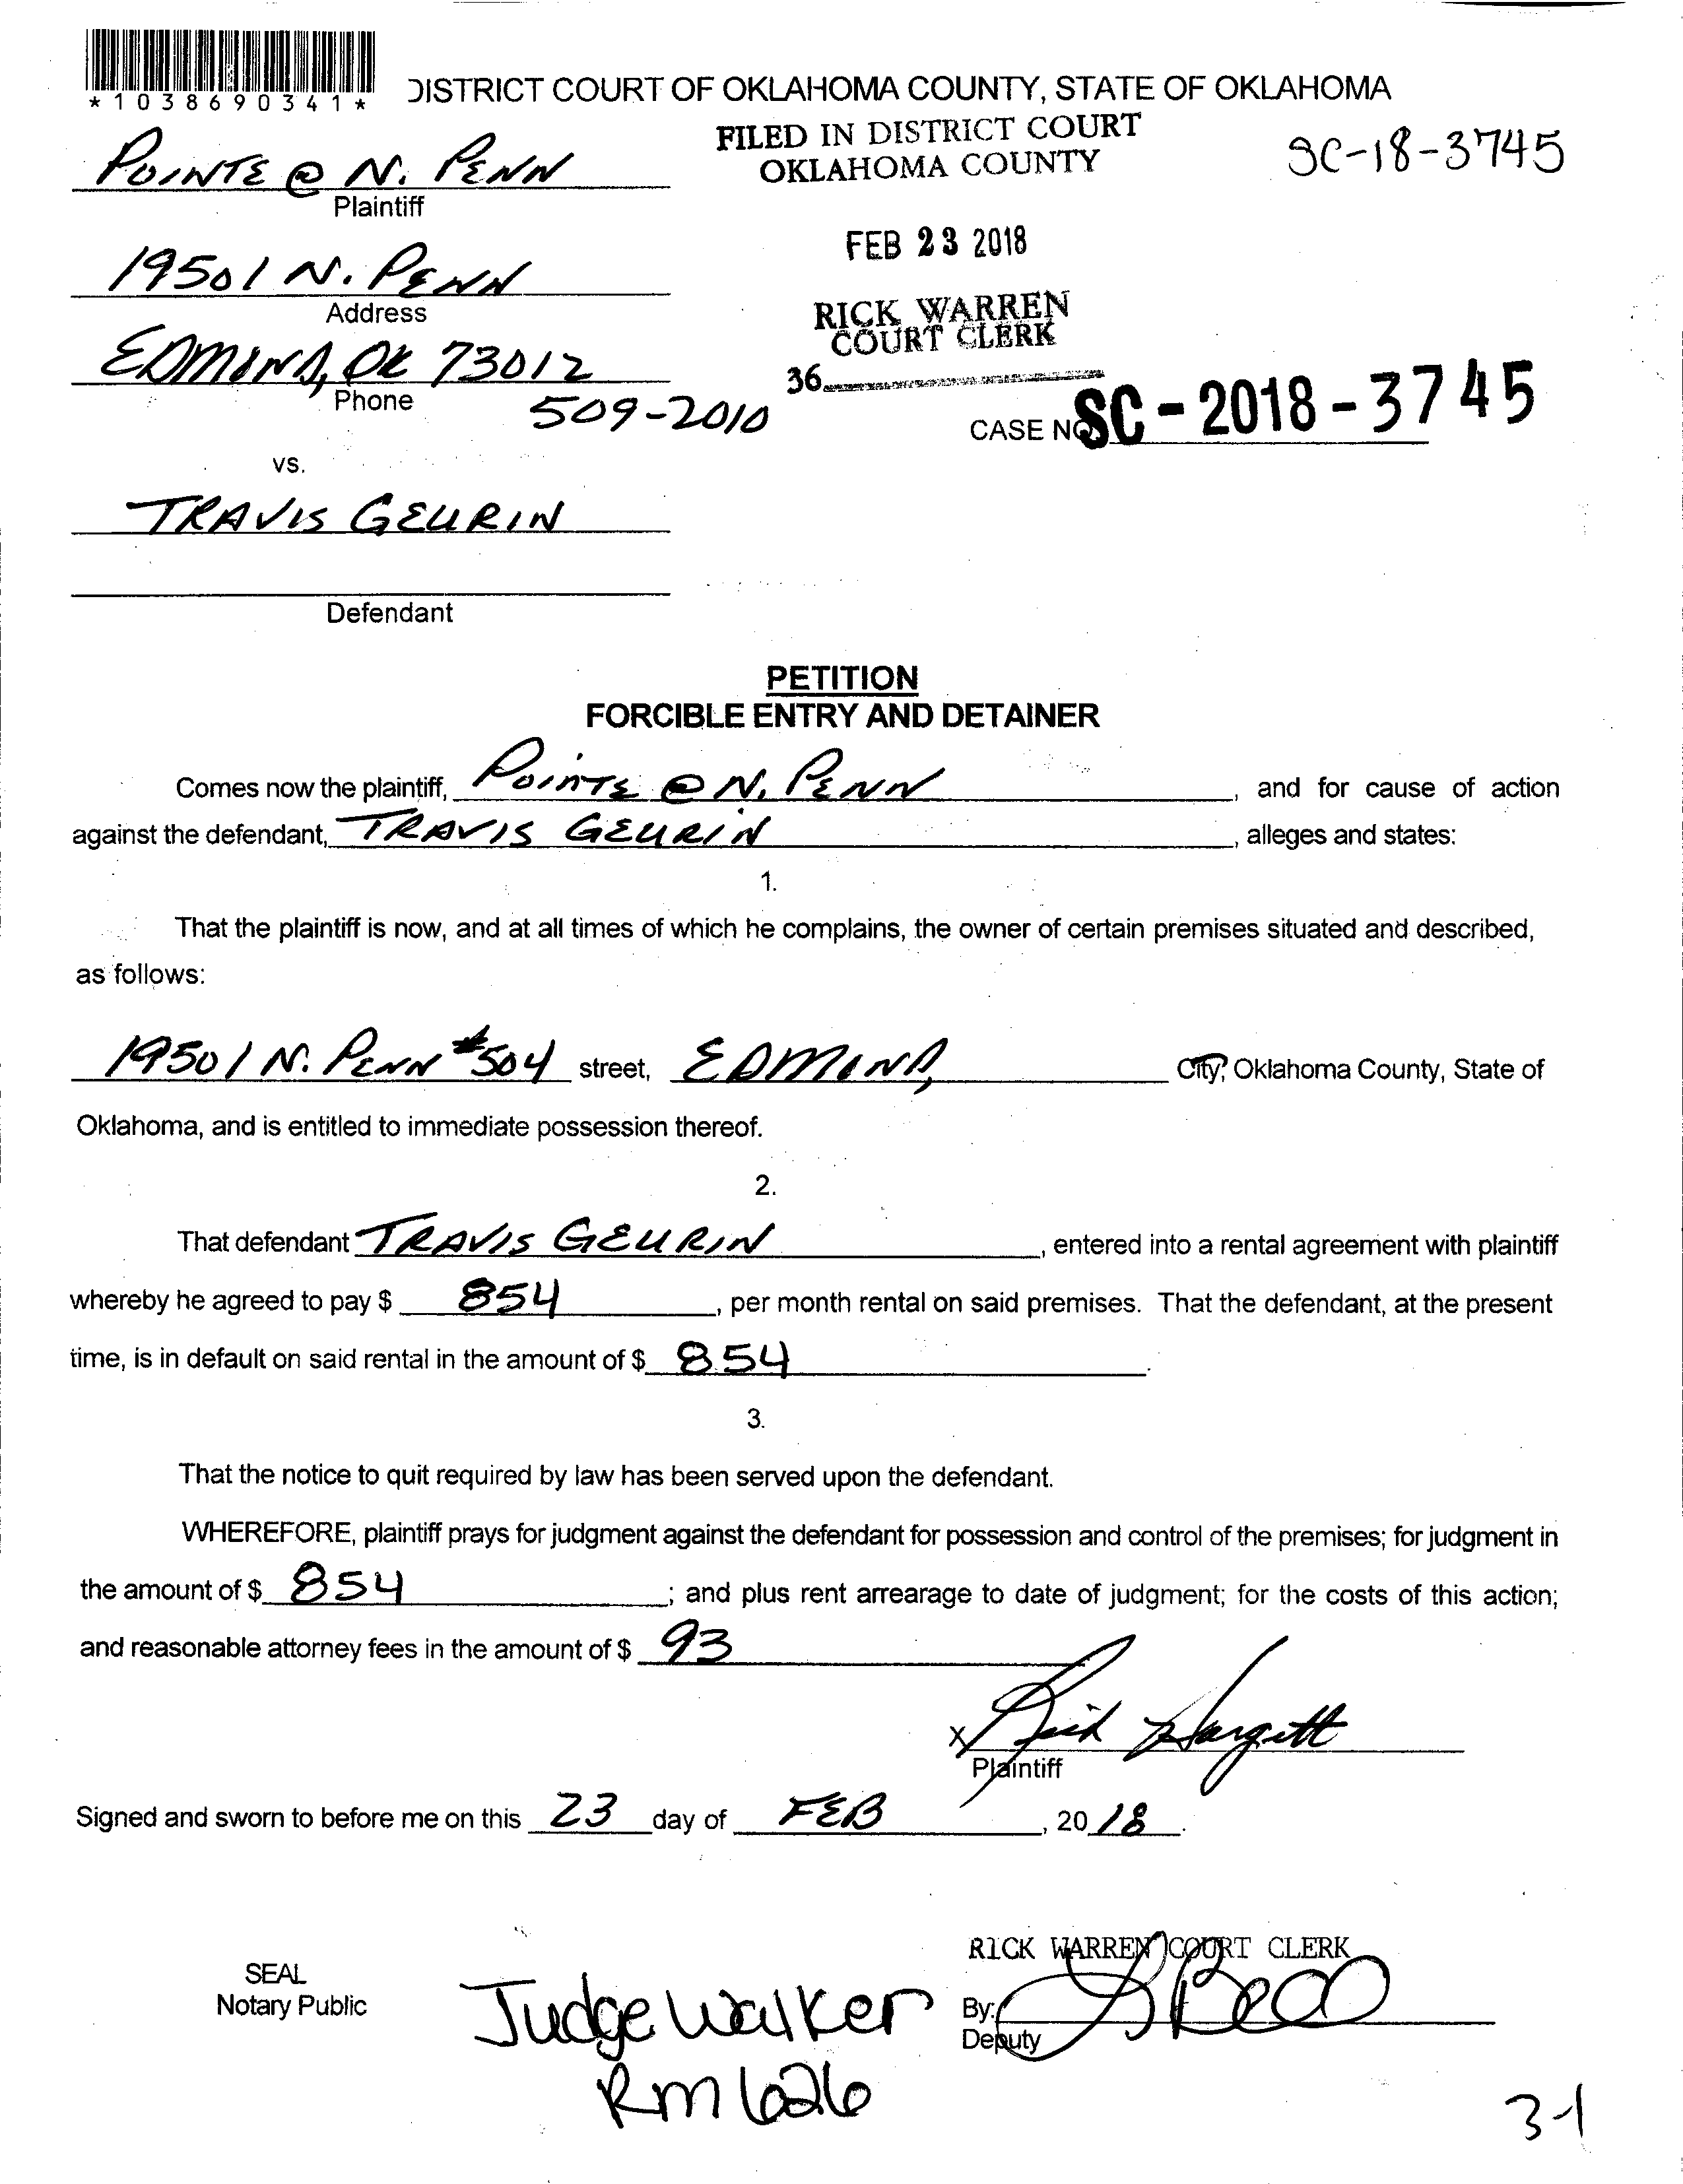 *1038690341*
DISTRICT COURT OF OKLAHOMA COUNTY, STATE OF OKLAHOMA
FILED IN DISTRICT COURT
OKLAHOMA COUNTY
SC-18-3745
POINTE @ N. PENN
Plaintiff
FEB 23 2018
19501 N. PENN
Address
RICK WARREN
COURT CLERK
EDMOND, OK 73012
36
Phone
509-2010
CASE NO. SC-2018-3745
vs.
TRAVIS GEURIN
Defendant
PETITION
FORCIBLE ENTRY AND DETAINER
Comes now the plaintiff, POINTE @ N. PENN, and for cause of action
against the defendant, TRAVIS GEURIN, alleges and states:
1.
That the plaintiff is now, and at all times of which he complains, the owner of certain premises situated and described,
as follows:
19501 N. PENN #504 street, EDMOND, City, Oklahoma County, State of
Oklahoma, and is entitled to immediate possession thereof.
2.
That defendant TRAVIS GEURIN, entered into a rental agreement with plaintiff
whereby he agreed to pay $ 854, per month rental on said premises. That the defendant, at the present
time, is in default on said rental in the amount of $ 854.
3.
That the notice to quit required by law has been served upon the defendant.
WHEREFORE, plaintiff prays for judgment against the defendant for possession and control of the premises; for judgment in
the amount of $ 854; and plus rent arrearage to date of judgment; for the costs of this action;
and reasonable attorney fees in the amount of $ 93
X Rick Hargett
Plaintiff
Signed and sworn to before me on this 23 day of FEB, 2018.
RICK WARREN COURT CLERK
SEAL
Notary Public
Judge Walker
By:
Deputy
Rm 626
3-1